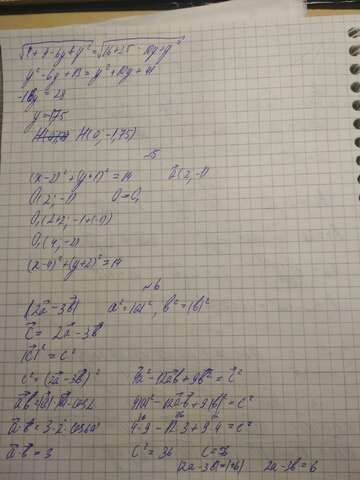 √4+9-6y+y² = √16+25-10y+y²
y²-6y+13 = y²+10y+41
-16y=28
y=-1,75
H(0, -1,75)
№5
(x-2)²+(y+1)²=14 a(2, -1)
O(2; -1) O→O₁
O₁(2+2, -1+(-1))
O₁(4, -2)
(x-4)²+(y+2)²=14
№6
|2a-3b| a²=|a|², b²=|b|²
c = 2a-3b
|c|²=c²
c²=(2a-3b)² 4a²-12ab+9b²=c²
ab=|a|·|b|·cos2 4|a|²-12ab+9|b|²=c²
a·b=3·2·cos60° 4·9-12·3+9·4=c²
a·b=3 c²=36 c=√36
|2a-3b|=√36 2a-3b=6